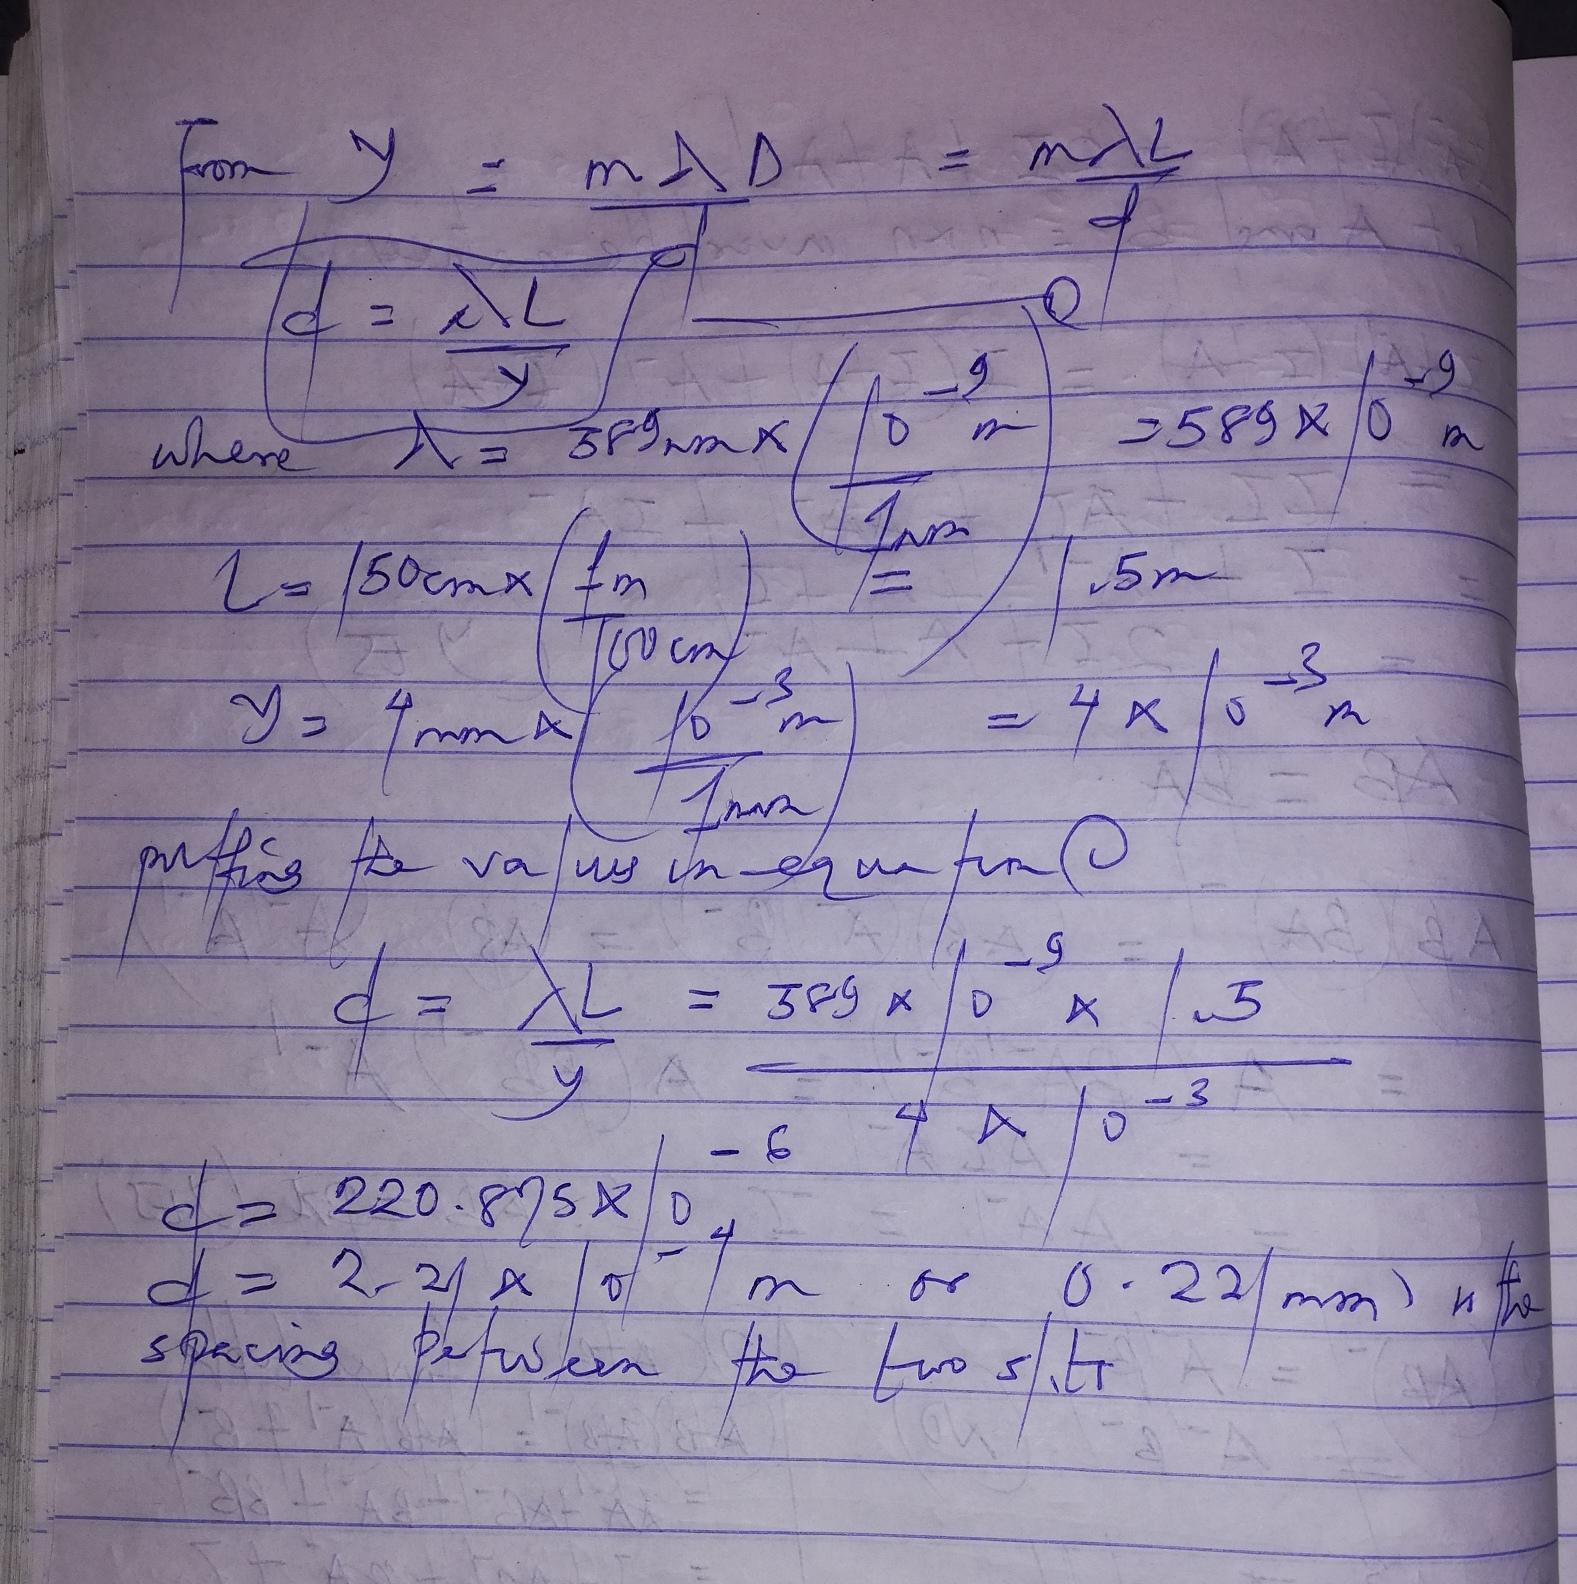 From y = mλD/d = mλL/d
d = λL/y ——— ①
where λ = 589nm x (10⁻⁹m/1nm) = 589 x 10⁻⁹ m
L = 150cm x (1m/100cm) = 1.5m
y = 4mm x (10⁻³m/1mm) = 4 x 10⁻³ m
putting the values in equation ①
d = λL/y = 589 x 10⁻⁹ x 1.5 / 4 x 10⁻³
d = 220.875 x 10⁻⁶
d = 2.21 x 10⁻⁴ m or 0.221mm) is the
spacing between the two slits